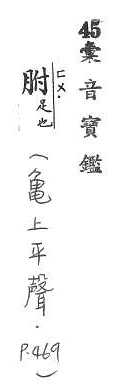 45彙音寶鑑
胕ㄈㄨ·足也
(亀上平聲·P.469)